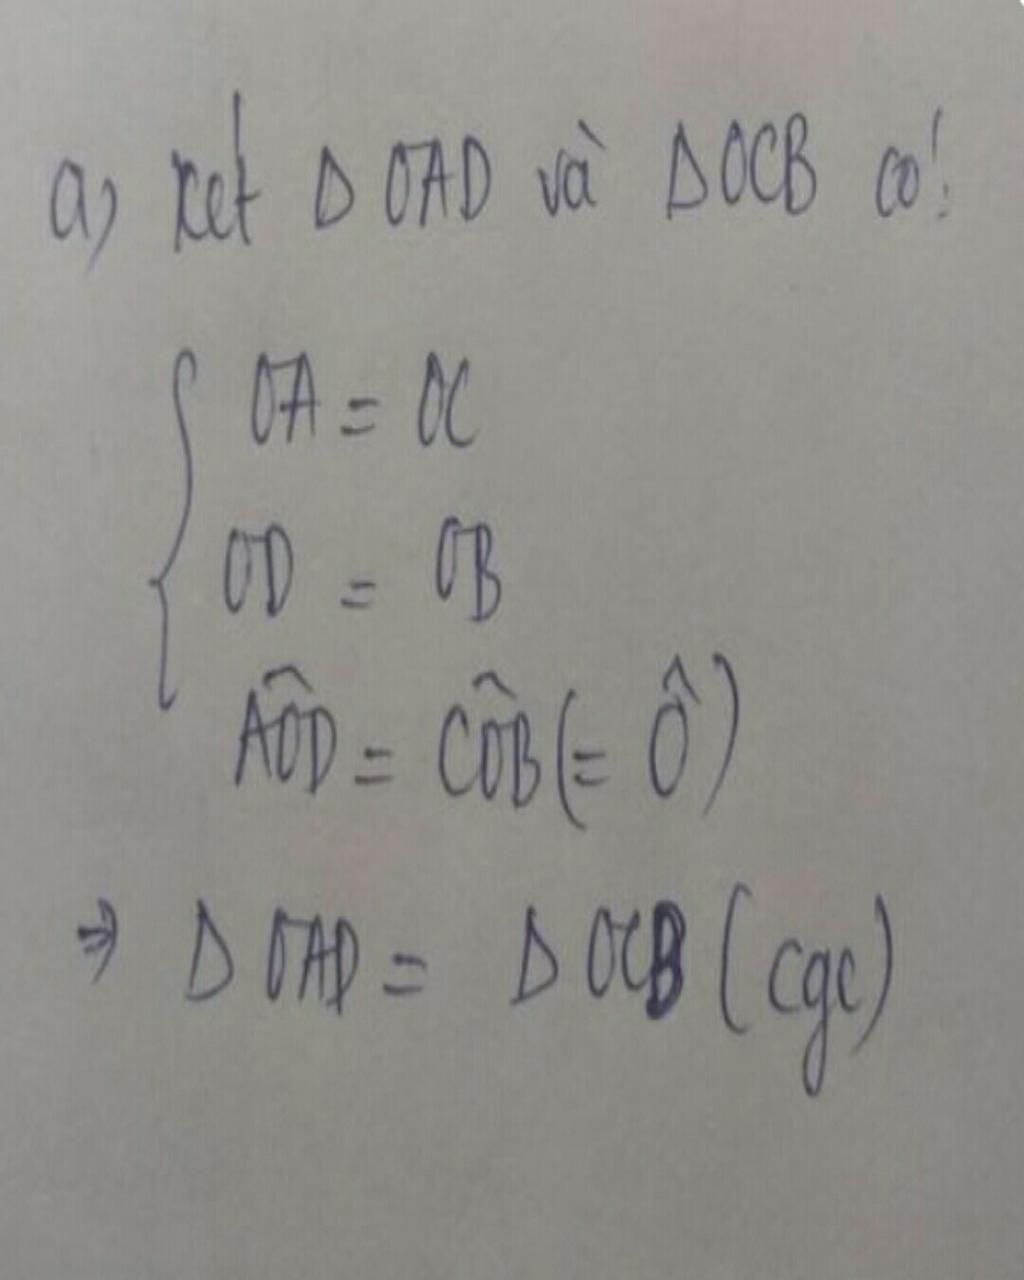 a) Xét Δ OAD và Δ OCB có:
OA = OC
OD = OB
\widehat{AOD} = \widehat{COB} (= Ô)
⇒ Δ OAD = Δ OCB (cgc)